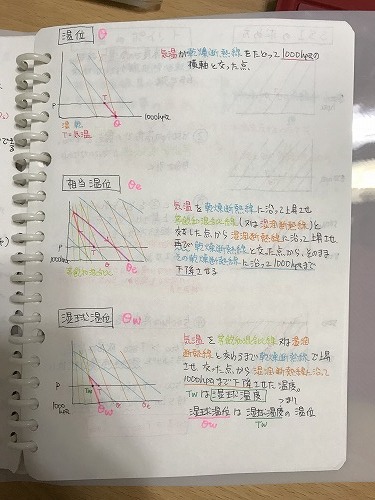 温位 θ
気温が乾燥断熱線をたどって1000hPaの
横軸と交った点.
P
T
1000hPa
θ
湿 乾
T=気温
相当温位 θe
気温を乾燥断熱線に沿って上昇させ
等飽和混合比線(又は湿潤断熱線)と
交差した点から湿潤断熱線に沿って上昇させ
再び乾燥断熱線と交った点から、そのまま
その乾燥断熱線に沿って1000hPaまで
下降させる
P
1000hPa
T θ θe
等飽和混合比
湿球温位 θw
気温を等飽和混合比線又は湿潤
断熱線と交わるまで乾燥断熱線で上昇
させ交った点から湿潤断熱線に沿って
1000hPaまで下降させた温度。
Twは湿球温度 つまり
湿球温位は湿球温度の温位
θw Tw
P
Tw T
1000
hPa
θw θ θe